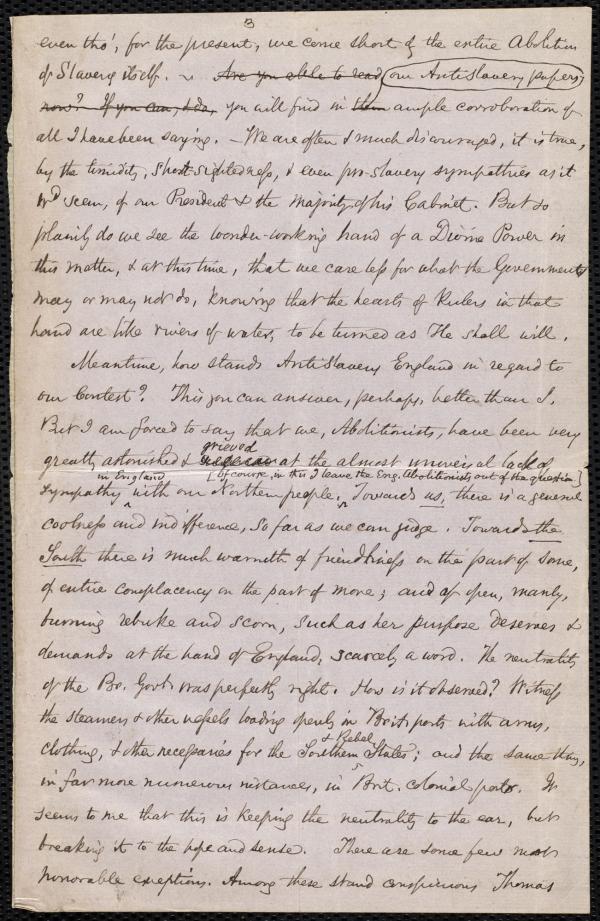 3
even tho', for the present, we come short of the entire Abolition
of Slavery itself. ~ Are you able to read our AntiSlavery papers,
now? If you can, & do, you will find in them ample corroboration of
all I have been saying. — We are often & much discouraged, it is true,
by the timidity, short-sightedness, & even pro-slavery sympathies as it
wd seem, of our President & the majority of his Cabinet. But so
plainly do we see the wonder-working hand of a Divine Power in
this matter, & at this time, that we care less for what the Government
may or may not do, knowing that the hearts of Rulers in that
hand are like rivers of water, to be turned as He shall will.
Meantime, how stands AntiSlavery England in regard to
our Contest? This you can answer, perhaps, better than I.
But I am forced to say that we, Abolitionists, have been very
grieved
greatly astonished & at the almost universal lack of
in England [of course, in this I leave the Eng. Abolitionists out of the question]
sympathy with our Northern people. Towards us, there is a general
coolness and indifference, so far as we can judge. Towards the
South there is much warmth of friendliness on the part of some,
of entire complacency on the part of more; and of open, manly,
burning rebuke and scorn, such as her purpose deserves &
demands at the hand of England, scarcely a word. The neutrality
of the Br. Govt. was perfectly right. How is it observed? Witness
the steamers & other vessels loading openly in Brit. ports with arms,
& Rebel
clothing, & other necessaries for the Southern States; and the same thing,
in far more numerous instances, in Brit. colonial ports. It
seems to me that this is keeping the neutrality to the ear, but
breaking it to the hope and sense. There are some few most
honorable exceptions. Among these stand conspicuous Thomas